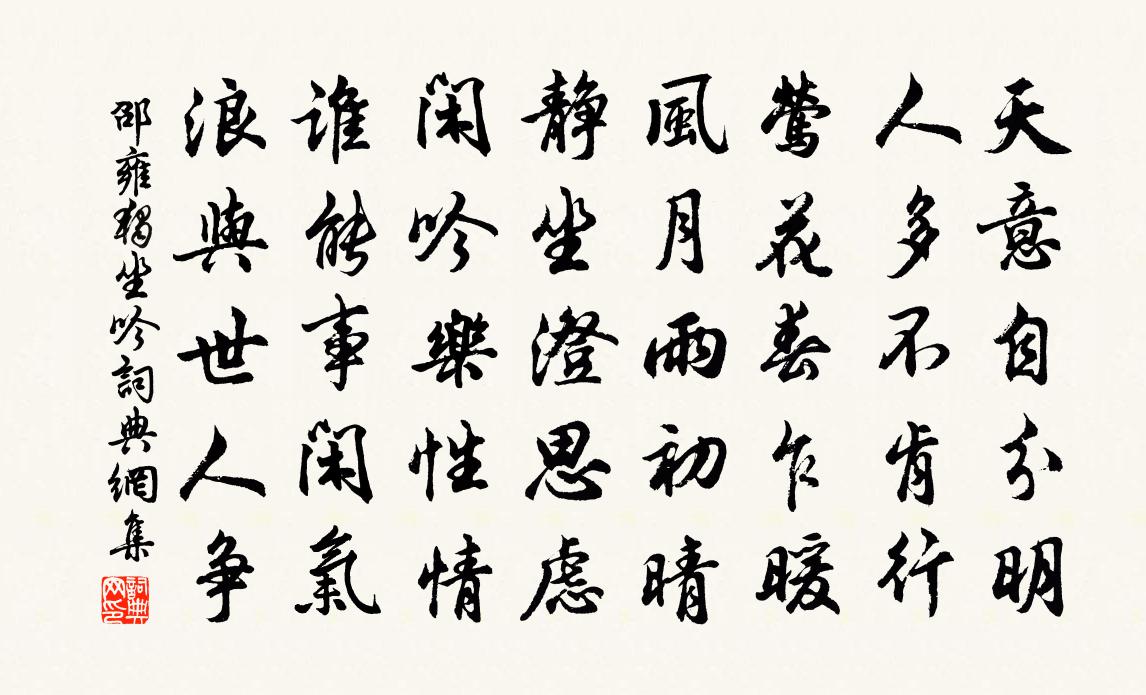 天意自分明
人多不肯行
鶯花春乍暖
風月雨初晴
靜坐澄思慮
閑吟樂性情
誰能事閑氣
浪與世人争
邵雍獨坐吟詞典網集
詞典網印